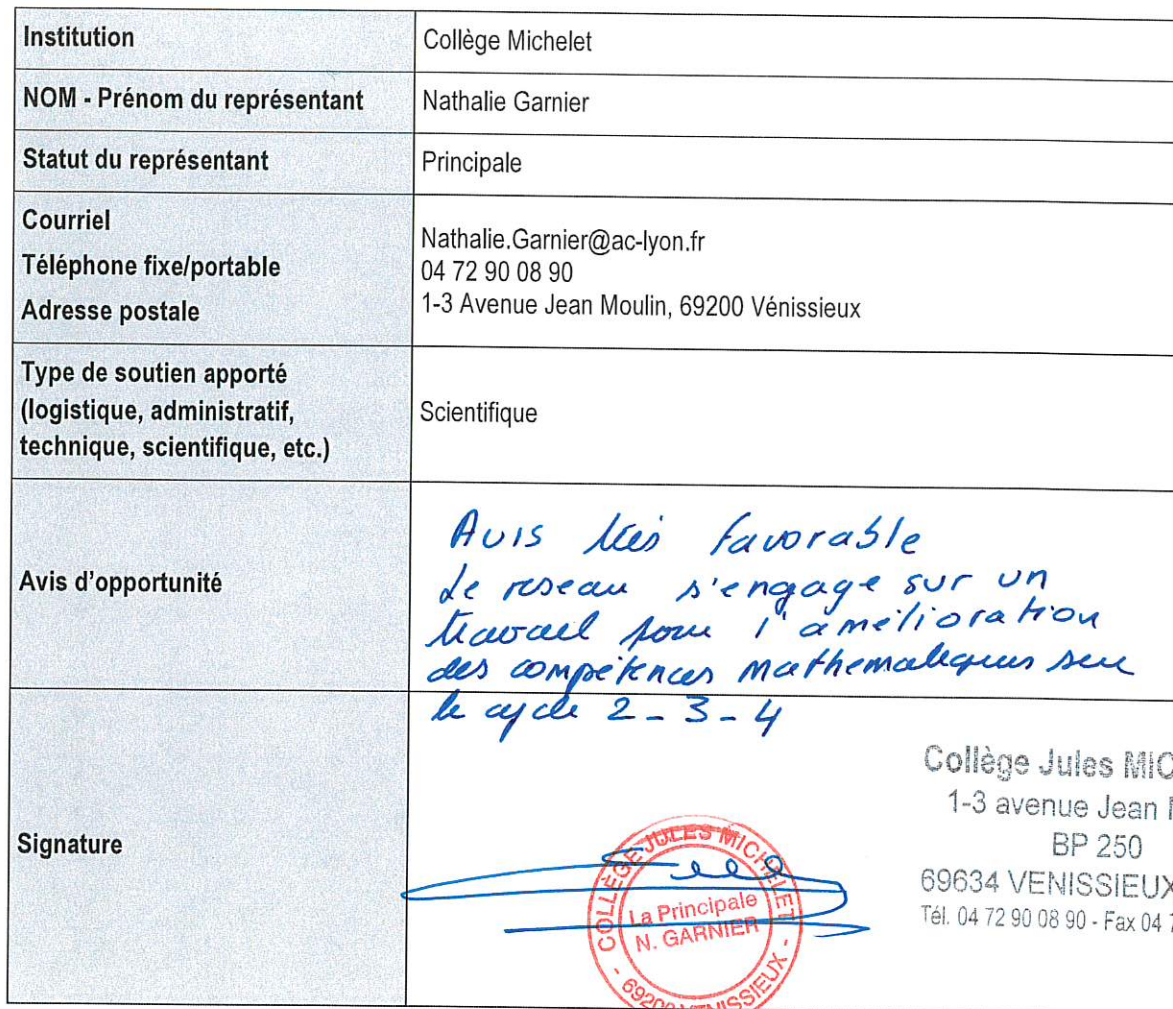 Institution
Collège Michelet
NOM - Prénom du représentant
Nathalie Garnier
Statut du représentant
Principale
Courriel
Téléphone fixe/portable
Adresse postale
Nathalie.Garnier@ac-lyon.fr
04 72 90 08 90
1-3 Avenue Jean Moulin, 69200 Vénissieux
Type de soutien apporté
(logistique, administratif,
technique, scientifique, etc.)
Scientifique
Avis d'opportunité
Avis très favorable
Le reseau s'engage sur un
travail pour l'amélioration
des compétences mathematiques sur
le cycle 2-3-4
Signature
Collège Jules MIC
1-3 avenue Jean
BP 250
69634 VENISSIEUX
Tél. 04 72 90 08 90 - Fax 04 7
COLLÈGE JULES MICHELET
La Principale
N. GARNIER
- 69200 VENISSIEUX -